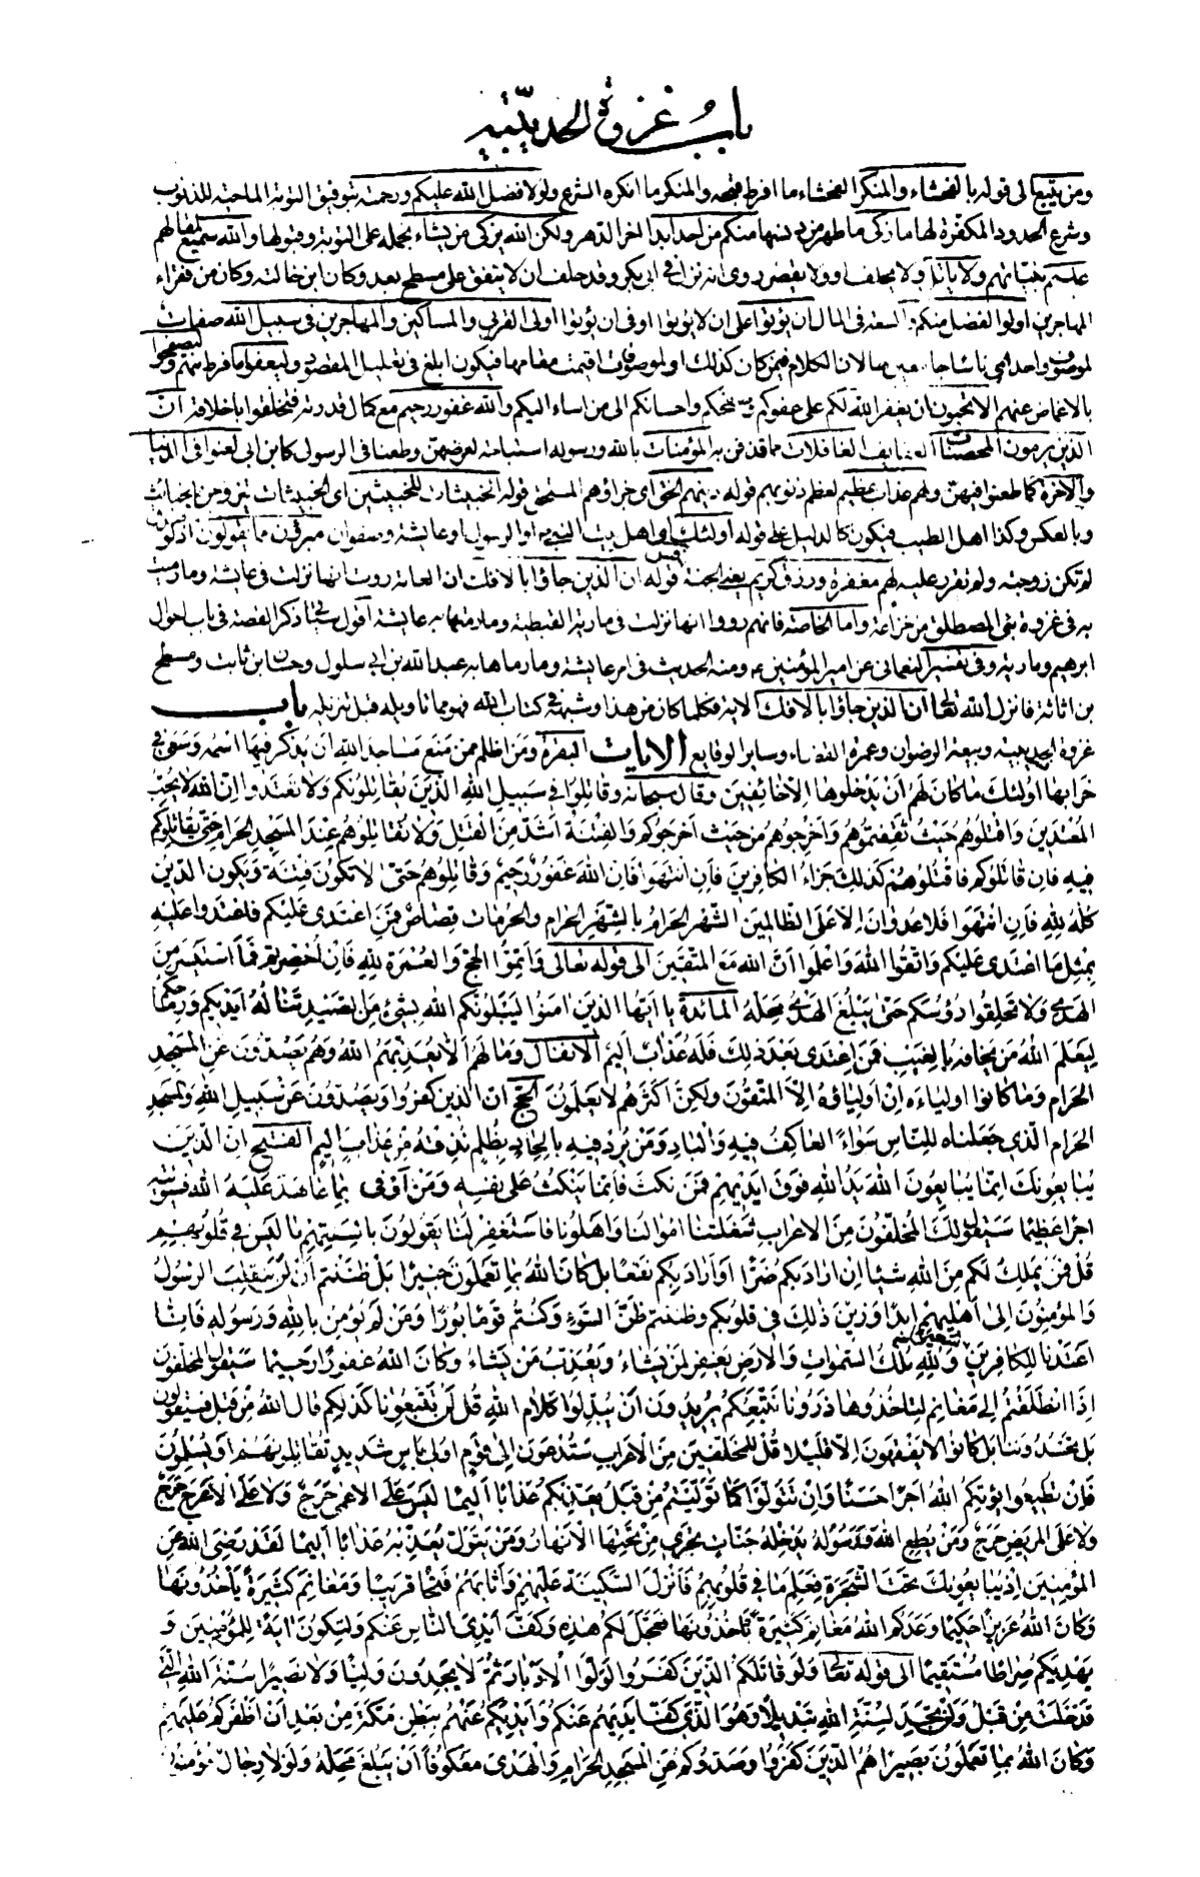 باب غزوة الحديبية
ومن يتبع الى قوله بالفحشاء والمنكر الفحشاء ما افرط قبحه والمنكر ما انكره الشرع ولولا فضل الله عليكم ورحمته بتوفيق التوبة الماحية للذنوب
وشرع الحدود المكفرة لها ما زكى ما طهر من دنسها منكم من احد ابدا اخر الدهر ولكن الله يزكي من يشاء بحمله على التوبة وقبولها والله سميع لمقالهم
عليم بنياتهم ولا يأتل ولا يحلف او ولا يقصر روى انه نزل في ابي بكر وقد حلف ان لا ينفق على مسطح بعد وكان ابن خالته وكان من فقراء
المهاجرين اولوا الفضل منكم والسعة في المال ان يؤتوا على ان لا يؤتوا او في ان يؤتوا اولى القربى والمساكين والمهاجرين في سبيل الله صفات
لموصوف واحد اي ناسا جامعين لها لان الكلام فيمن كان كذلك او لموصوفات اقيمت مقامها فيكون ابلغ في تعليل المقصود وليعفوا ما فرط منهم وليصفحوا
بالاغماض عنهم الا تحبون ان يغفر الله لكم على عفوكم وصفحكم واحسانكم الى من اساء اليكم والله غفور رحيم مع كمال قدرته فتخلقوا باخلاقه ان
الذين يرمون المحصنات العفايف الغافلات مما قذفن به المؤمنات بالله ورسوله استباحة لعرضهن وطعنا في الرسول كابن ابي لعنوا في الدنيا
والاخرة كما طعنوا فيهن ولهم عذاب عظيم لعظم ذنوبهم قوله دينهم الحق اي جزاؤهم المستحق قوله الخبيثات للخبيثين اي الخبيثات يتزوجن بخباث
وبالعكس وكذا اهل الطيب فيكون كالدليل على قوله اولئك اي اهل بيت النبي او الرسول او عايشة وصفوان مبرؤن مما يقولون اذ لو صدق
لم تكن زوجته ولم تقرر عليه لهم مغفرة ورزق كريم يعني الجنة قوله ان الذين جاؤا بالافك ان العامة روت انها نزلت في عايشة وما رميت
به في غزوة بني المصطلق من خزاعة واما الخاصة فانهم رووا انها نزلت في مارية القبطية وما رمتها به عايشة اقول سيأتي ذكر القصة في باب احوال
ابرهيم ومارية وفي تفسير النعماني عن امير المؤمنين ع ومنه الحديث في امر عايشة وما رماها به عبد الله بن ابي سلول وحسان ابن ثابت ومسطح
بن اثاثة فانزل الله تعالى ان الذين جاؤا بالافك الاية فكلما كان من هذا وشبهه في كتاب الله فهو مما تاويله قبل تنزيله باب
غزوة الحديبية وبيعة الرضوان وعمرة القضاء وساير الوقايع الايات البقرة ومن اظلم ممن منع مساجد الله ان يذكر فيها اسمه وسعى في
خرابها اولئك ما كان لهم ان يدخلوها الا خائفين وقال سبحانه وقاتلوا في سبيل الله الذين يقاتلونكم ولا تعتدوا ان الله لا يحب
المعتدين واقتلوهم حيث ثقفتموهم واخرجوهم من حيث اخرجوكم والفتنة اشد من القتل ولا تقاتلوهم عند المسجد الحرام حتى يقاتلوكم
فيه فان قاتلوكم فاقتلوهم كذلك جزاء الكافرين فان انتهوا فان الله غفور رحيم وقاتلوهم حتى لا تكون فتنة ويكون الدين
كله لله فان انتهوا فلا عدوان الا على الظالمين الشهر الحرام بالشهر الحرام والحرمات قصاص فمن اعتدى عليكم فاعتدوا عليه
بمثل ما اعتدى عليكم واتقوا الله واعلموا ان الله مع المتقين الى قوله تعالى واتموا الحج والعمرة لله فان احصرتم فما استيسر من
الهدي ولا تحلقوا رؤسكم حتى يبلغ الهدي محله المائدة يا ايها الذين امنوا ليبلونكم الله بشئ من الصيد تناله ايديكم ورماحكم
ليعلم الله من يخافه بالغيب فمن اعتدى بعد ذلك فله عذاب اليم الانفال وما لهم الا يعذبهم الله وهم يصدون عن المسجد
الحرام وما كانوا اولياءه ان اولياؤه الا المتقون ولكن اكثرهم لا يعلمون الحج ان الذين كفروا ويصدون عن سبيل الله والمسجد
الحرام الذي جعلناه للناس سواء العاكف فيه والباد ومن يرد فيه بالحاد بظلم نذقه من عذاب اليم الفتح ان الذين
يبايعونك انما يبايعون الله يد الله فوق ايديهم فمن نكث فانما ينكث على نفسه ومن اوفى بما عاهد عليه الله فسيؤتيه
اجرا عظيما سيقول لك المخلفون من الاعراب شغلتنا اموالنا واهلونا فاستغفر لنا يقولون بالسنتهم ما ليس في قلوبهم
قل فمن يملك لكم من الله شيئا ان اراد بكم ضرا او اراد بكم نفعا بل كان الله بما تعملون خبيرا بل ظننتم ان لن ينقلب الرسول
والمؤمنون الى اهليهم ابدا وزين ذلك في قلوبكم وظننتم ظن السوء وكنتم قوما بورا ومن لم يؤمن بالله ورسوله فانا
اعتدنا للكافرين سعيرا ولله ملك السموات والارض يغفر لمن يشاء ويعذب من يشاء وكان الله غفورا رحيما سيقول المخلفون
اذا انطلقتم الى مغانم لتاخذوها ذرونا نتبعكم يريدون ان يبدلوا كلام الله قل لن تتبعونا كذلكم قال الله من قبل فسيقولون
بل تحسدوننا بل كانوا لا يفقهون الا قليلا قل للمخلفين من الاعراب ستدعون الى قوم اولي باس شديد تقاتلونهم او يسلمون
فان تطيعوا يؤتكم الله اجرا حسنا وان تتولوا كما توليتم من قبل يعذبكم عذابا اليما ليس على الاعمى حرج ولا على الاعرج حرج
ولا على المريض حرج ومن يطع الله ورسوله يدخله جنات تجري من تحتها الانهار ومن يتول يعذبه عذابا اليما لقد رضي الله عن
المؤمنين اذ يبايعونك تحت الشجرة فعلم ما في قلوبهم فانزل السكينة عليهم واثابهم فتحا قريبا ومغانم كثيرة ياخذونها
وكان الله عزيزا حكيما وعدكم الله مغانم كثيرة تاخذونها فعجل لكم هذه وكف ايدي الناس عنكم ولتكون اية للمؤمنين و
يهديكم صراطا مستقيما الى قوله تعالى ولو قاتلكم الذين كفروا لولوا الادبار ثم لا يجدون وليا ولا نصيرا سنة الله التي
قد خلت من قبل ولن تجد لسنة الله تبديلا وهو الذي كف ايديهم عنكم وايديكم عنهم ببطن مكة من بعد ان اظفركم عليهم
وكان الله بما تعملون بصيرا هم الذين كفروا وصدوكم عن المسجد الحرام والهدى معكوفا ان يبلغ محله ولولا رجال مؤمنون